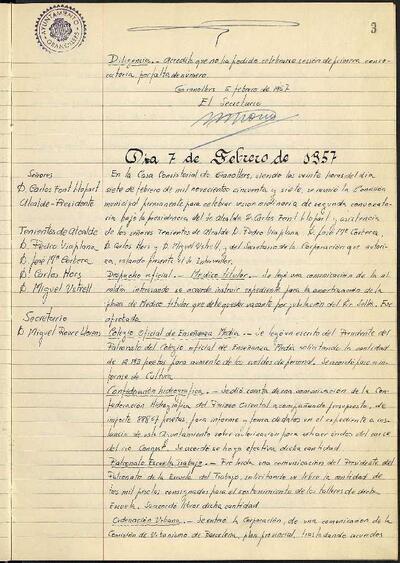 AYUNTAMIENTO
GRANOLLERS
3
Diligencia.- Acredito que no ha podido celebrarse sesión de primera convo-
catoria por falta de número.
Granollers 5 febrero de 1957
El Secretario
Dia 7 de Febrero de 1957
Señores
D. Carlos Font Llopart
Alcalde-Presidente
Tenientes de Alcalde
D. Pedro Viaplana
D. José Mª Corbera
D. Carlos Hors
D. Miguel Ustrell
Secretario
D. Miguel
En la Casa Consistorial de Granollers, siendo las veinte horas del día
siete de febrero de mil novecientos cincuenta y siete, se reunió la Comisión
municipal permanente para celebrar sesión ordinaria de segunda convocato-
ria bajo la presidencia del Sr Alcalde D. Carlos Font Llopart y asistencia
de los señores Tenientes de Alcalde D. Pedro Viaplana, D. José Mª Corbera,
D. Carlos Hors y D. Miguel Ustrell, y del Secretario de la Corporación que autori-
za, estando presente el Sr. Interventor.
Despacho oficial.- Medico titular.- Se leyó una comunicación de la al-
caldía interesando se acuerde instruir expediente para la amortización de la
plaza de Medico titular que debe quedar vacante por jubilación del Dr.
aprobada.
Colegio Oficial de Enseñanza Media.- Se leyó un escrito del Presidente del
Patronato del Colegio oficial de Enseñanza Media solicitando la cantidad
de pesetas para aumento de los sueldos del personal. Se acordó pase a in-
forme de Cultura
Confederación hidrográfica.- Se dió cuenta de una comunicación de la Con-
federación Hidrográfica del Pirineo Oriental acompañando presupuesto, de
importe pesetas para informe y toma de datos en el expediente a ins-
tancia de este Ayuntamiento sobre autorización para extraer áridos del cauce
del rio Congost. Se acordó se haga efectiva dicha cantidad
Patronato Escuela Trabajo.- Fue leida una comunicación del Presidente del
Patronato de la Escuela del Trabajo, solicitando se libre la cantidad de
tres mil pesetas consignadas para el sostenimiento de los talleres de dicha
Escuela. Se acordó librar dicha cantidad
Ordenación Urbana.- Se enteró la Corporación, de una comunicación de la
Comisión de Urbanismo de Barcelona, plan provincial, trasladando acuerdos